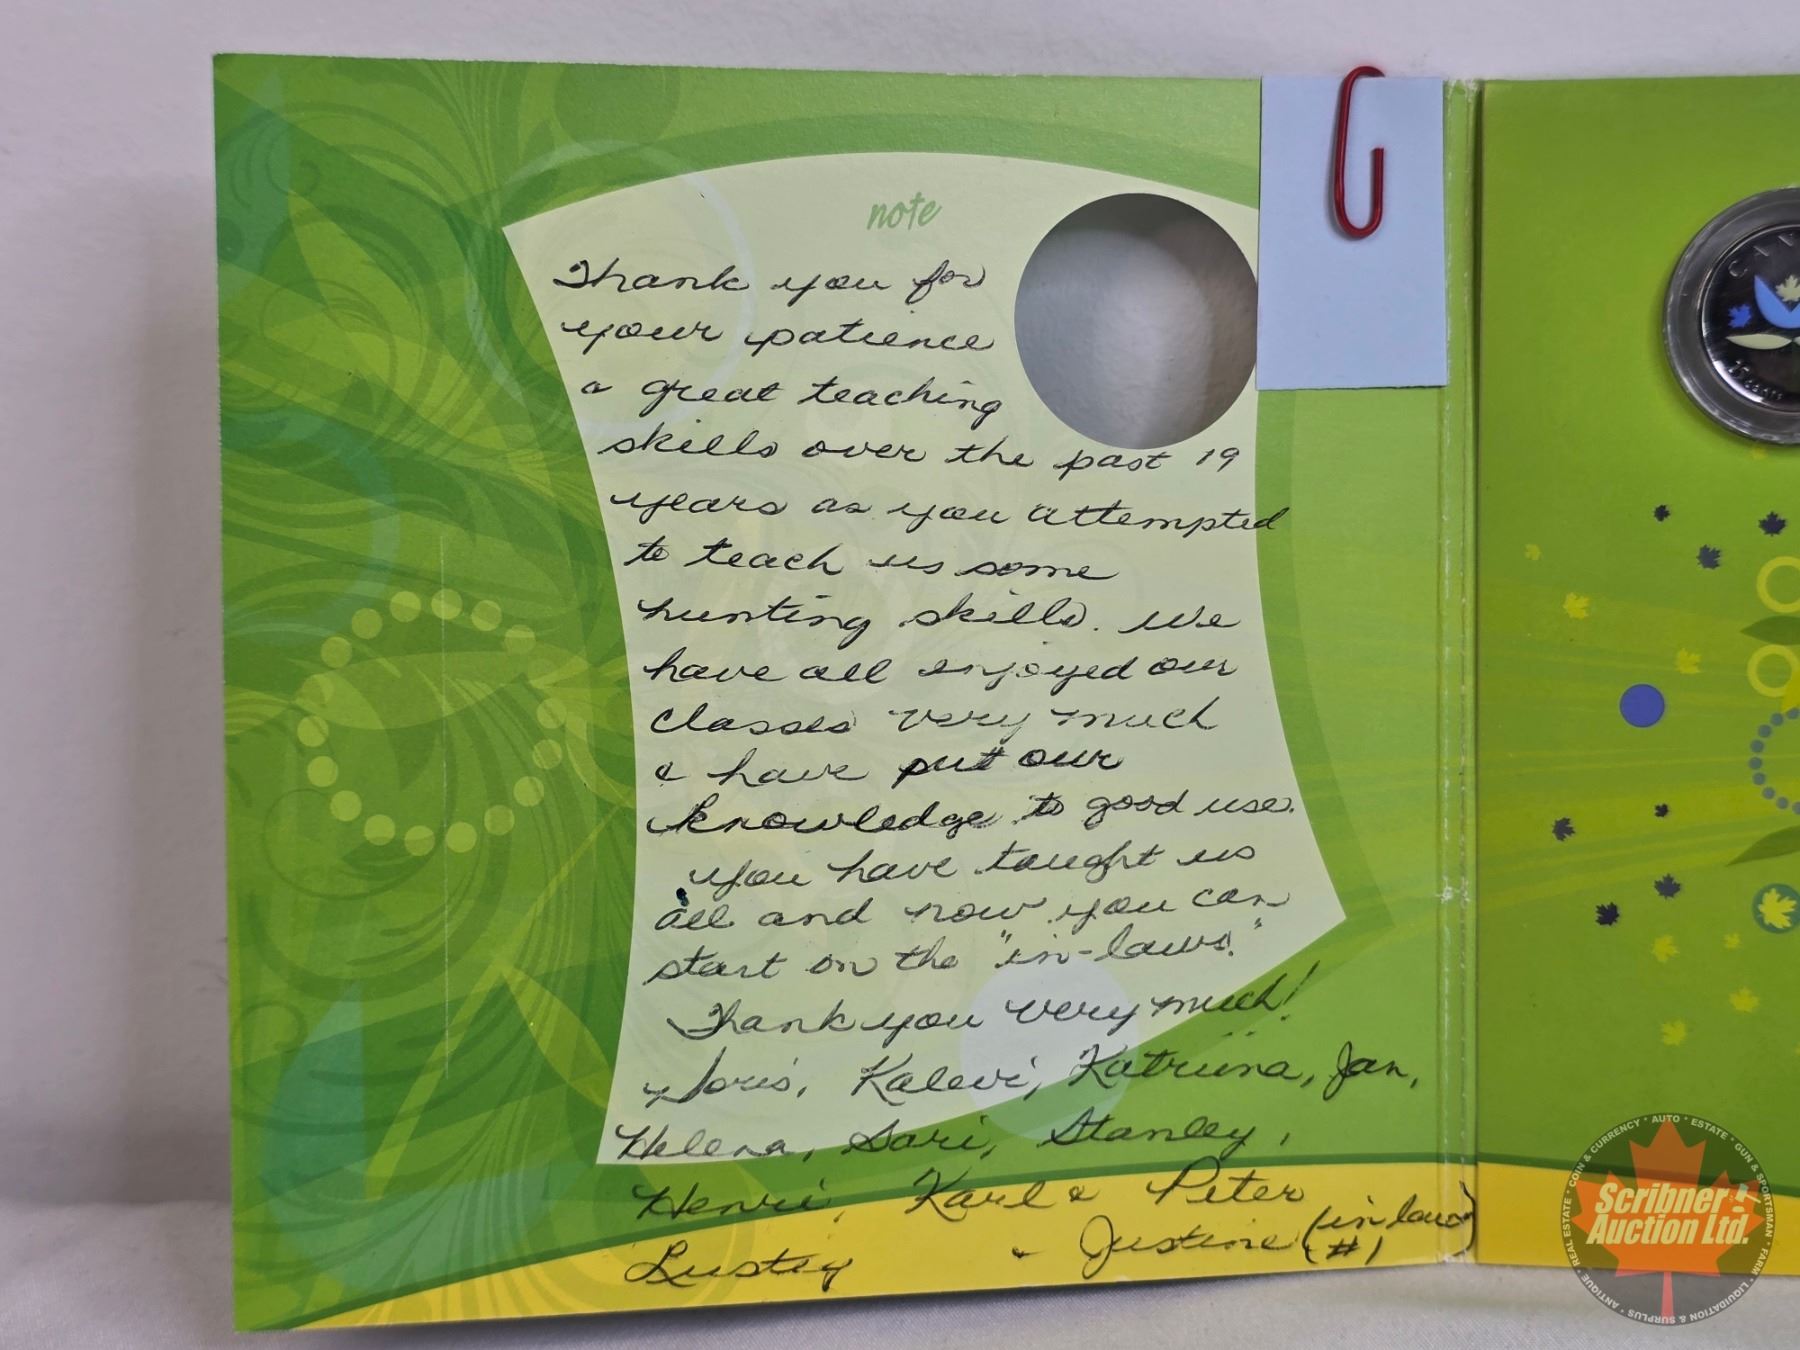 note
Thank you for
your patience
& great teaching
skills over the past 19
years as you attempted
to teach us some
hunting skills. We
have all enjoyed our
classes very much
& have put our
knowledge to good use.
You have taught us
all and now you can
start on the "in-laws."
Thank you very much!
Doris, Kalevi, Katriina, Jan,
Helena, Sari, Stanley,
Henri, Karl & Peter
Lustey & Justine (in law #1)
25 cents
COIN & CURRENCY • AUTO • ESTATE • GUN & SPORTSMAN • FARM • LIQUIDATION & SURPLUS • ANTIQUE • REAL ESTATE
Scribner
Auction Ltd.